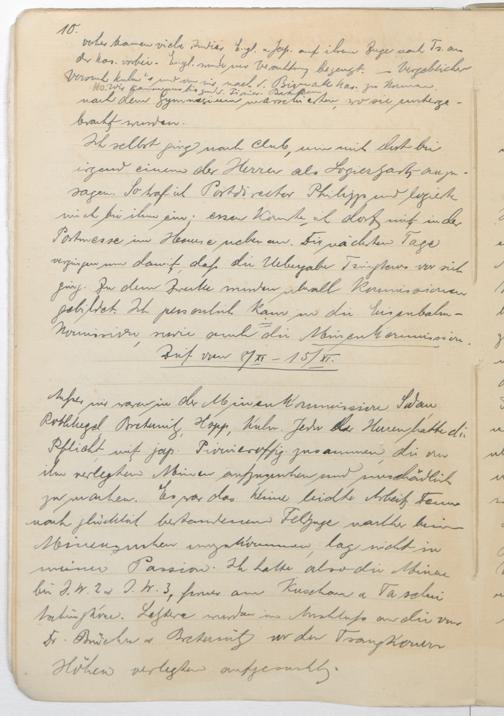 10.
vorher kamen viele Inder, Engl. u. Jap. auf ihrem Zuge nach Ts. an
der Kas. vorbei. Engl. wurde nur Verachtung bezeugt. — Vergeblicher
Versuch Kuhn's und von mir nach d. Bismarckkas. zu kommen.
nach dem Gymnasium marschierten, wo sie unterge-
bracht wurden.
Ich selbst ging nach Club, um mich dort bei
irgend einem der Herren als Logiergast anzu-
sagen. So traf ich Postdirector Philipp und logierte
mich bei ihm ein; essen konnte ich dort mit in der
Postmesse im Hause nebenan. Die nächsten Tage
vergingen nun damit, daß die Uebergabe Tsingtaus vor sich
ging. Zu dem Zwecke wurden überall Kommissionen
gebildet. Ich persönlich kam in die Eisenbahn-
Kommission, sowie auch die Minenkommission.
Zeit vom 8/XI – 15/XI.
Außer mir waren in der Minenkommission Sodan
Rothkegel, Breternitz, Hopp, Kuhn. Jeder der Herren hatte die
Pflicht mit jap. Pionieroffz zusammen, die von
ihm verlegten Minen aufzusuchen und unschädlich
zu machen. Es war das keine leichte Arbeit. Denn
nach glücklich bestandenem Feldzuge nachher beim
Minensuchen umzukommen, lag nicht in
meiner Passion. Ich hatte also die Minen
bei J.W. 2 u. J.W. 3, ferner am Kuschan u. Taschan
Letztere wurden im Anschluß an die von
Dr. Brücher u. Breternitz vor den
Höhen verlegten aufgesucht.